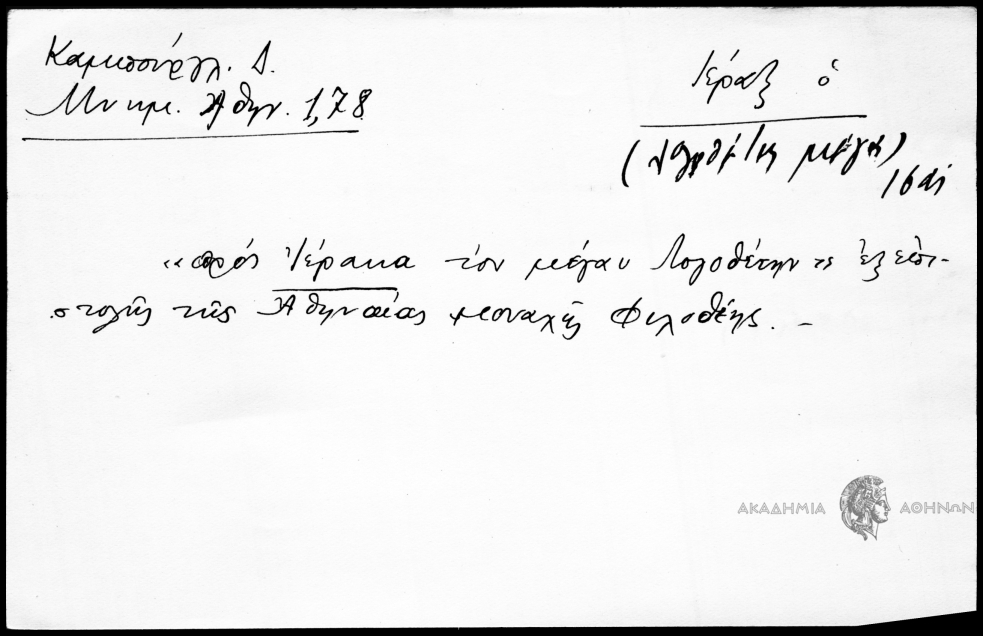 Καμπούρογλ. Δ.
Μνημ. Ἀθην. 1,78
Ἱέραξ ὁ
(λογοθέτης μέγας)
16 αἰ
«πρός Ἱέρακα τόν μέγαν Λογοθέτην τῆς ἐπι-
στολῆς τῆς Ἀθηναίας μοναχῆς Φιλοθέης. –
ΑΚΑΔΗΜΙΑ ΑΘΗΝΩΝ